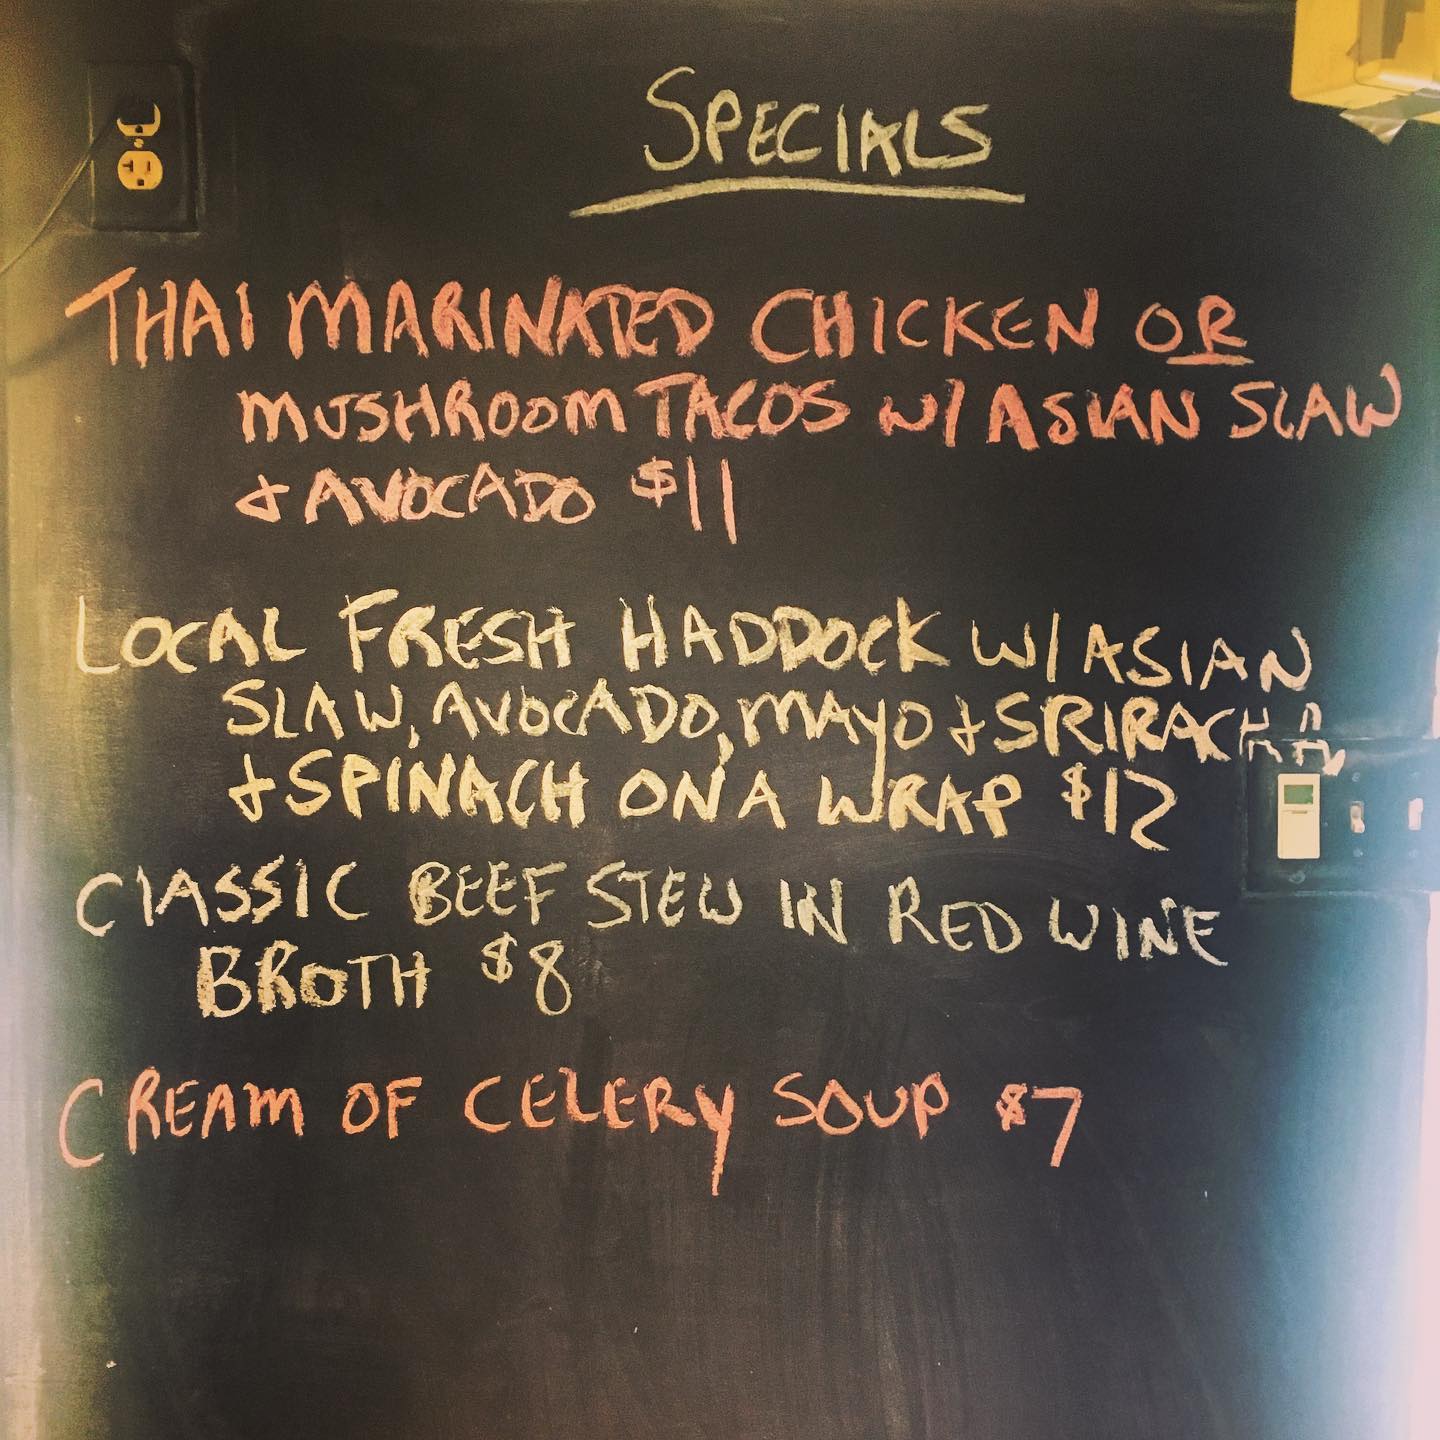 SPECIALS
THAI MARINATED CHICKEN OR
MUSHROOM TACOS W/ ASIAN SLAW
& AVOCADO $11
LOCAL FRESH HADDOCK W/ ASIAN
SLAW, AVOCADO, MAYO & SRIRACHA
& SPINACH ON A WRAP $12
CLASSIC BEEF STEW IN RED WINE
BROTH $8
CREAM OF CELERY SOUP $7